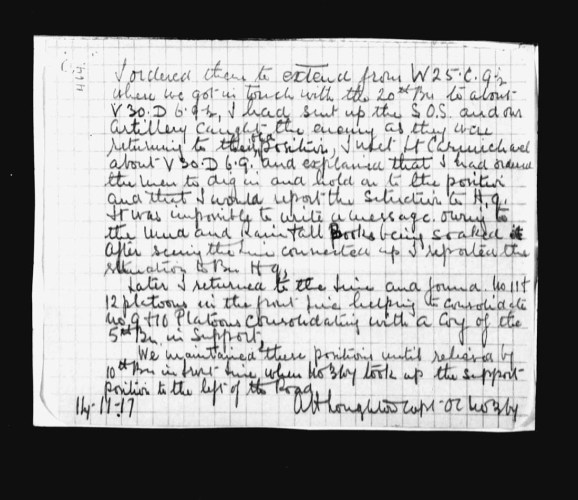 I ordered them to extend from W25.C.9.2
where we got in touch with the 20th Bn to about
V30.D 6.9.2, I had sent up the S.O.S. and our
Artillery caught the enemy as they were
returning to their position, I met Lt Carmichael
about V30.D 6.9. and explained that I had ordered
the men to dig in and hold on to the position
and that I would report the situation to H.Q.
It was impossible to write a message owing to
the mud and Rain & all Books being soaked
After seeing the line connected up I reported the
situation to Bn H Q,
Later I returned to the line and found No. 11 &
12 platoons in the front line helping to consolidate
No. 9 & 10 Platoons consolidating with a Coy of the
5th Bn in support,
We maintained these positions until relieved by
10th Bn in front line, when No 3 Coy took up the support
position to the left of the Road
14-11-17 Capt OC No 3 Coy